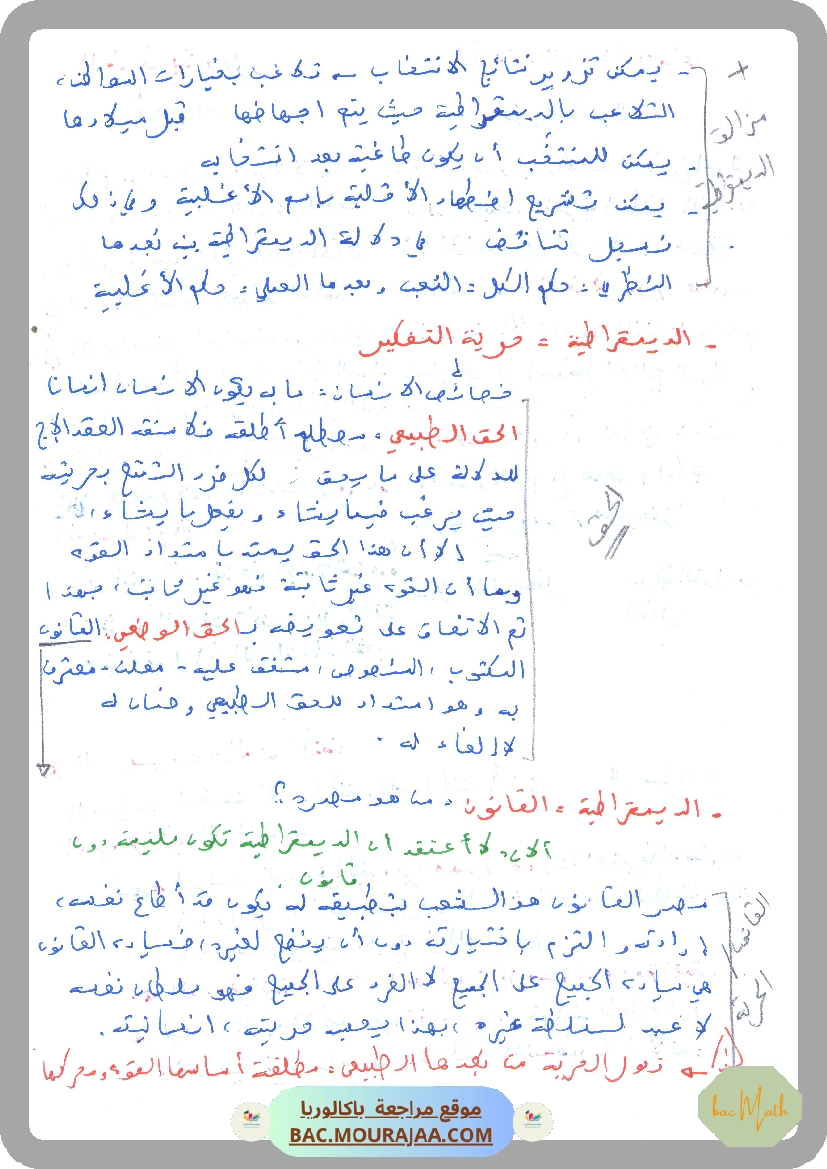 + مزالق الديمقراطية
- يمكن تزوير نتائج الانتخاب → تلاعب بخيارات المواطن،
التلاعب بالديمقراطية حيث يتم اجهاضها قبل ميلادها
- يمكن للمنتخب أن يكون طاغية بعد انتخابه
- يمكن تشريع اضطهاد الأقلية باسم الأغلبية وفي ذلك
نسجل تناقض في دلالة الديمقراطية بين بعدها
النظري = حكم الكل = الشعب وبعدها العملي = حكم الأغلبية
- الديمقراطية = حرية التفكير
خصائص الانسان = ما به يكون الانسان انسانا
الحق
الحق الطبيعي = مصطلح أطلقه فلاسفة العقد الإج
للدلالة على ما يحق لكل فرد التمتع بحريته
حيث يرغب فيما يشاء ويفعل ما يشاء،
الا أن هذا الحق يمتد بامتداد القوة
وبما أن القوة غير ثابتة فهو غير ثابت، بهذا
تم الاتفاق على تعويضه بالحق الوضعي. القانون
المكتوب، المنصوص، متفق عليه - معلن - معترف
به وهو امتداد للحق الطبيعي وضمان له
لا إلغاء له.
- الديمقراطية = القانون، ما هو مصدره؟
ألان: لا أعتقد ان الديمقراطية تكون سليمة دون
قانون.
القانون الحرية
مصدر القانون هو الشعب بتطبيقه له يكون قد أطاع نفسه،
إرادته والتزم باختياراته دون أن يخضع لغيره، فسيادة القانون
هي سيادة الجميع على الجميع لا الفرد على الجميع فهو سلطان نفسه
لا عبد لسلطة غيره، بهذا يصب حريته، انسانيته.
إذن → تحول الحرية من بعدها الطبيعي = مطلقة أساسها القوة ومحركها
bac Math
موقع مراجعة باكالوريا
BAC.MOURAJAA.COM